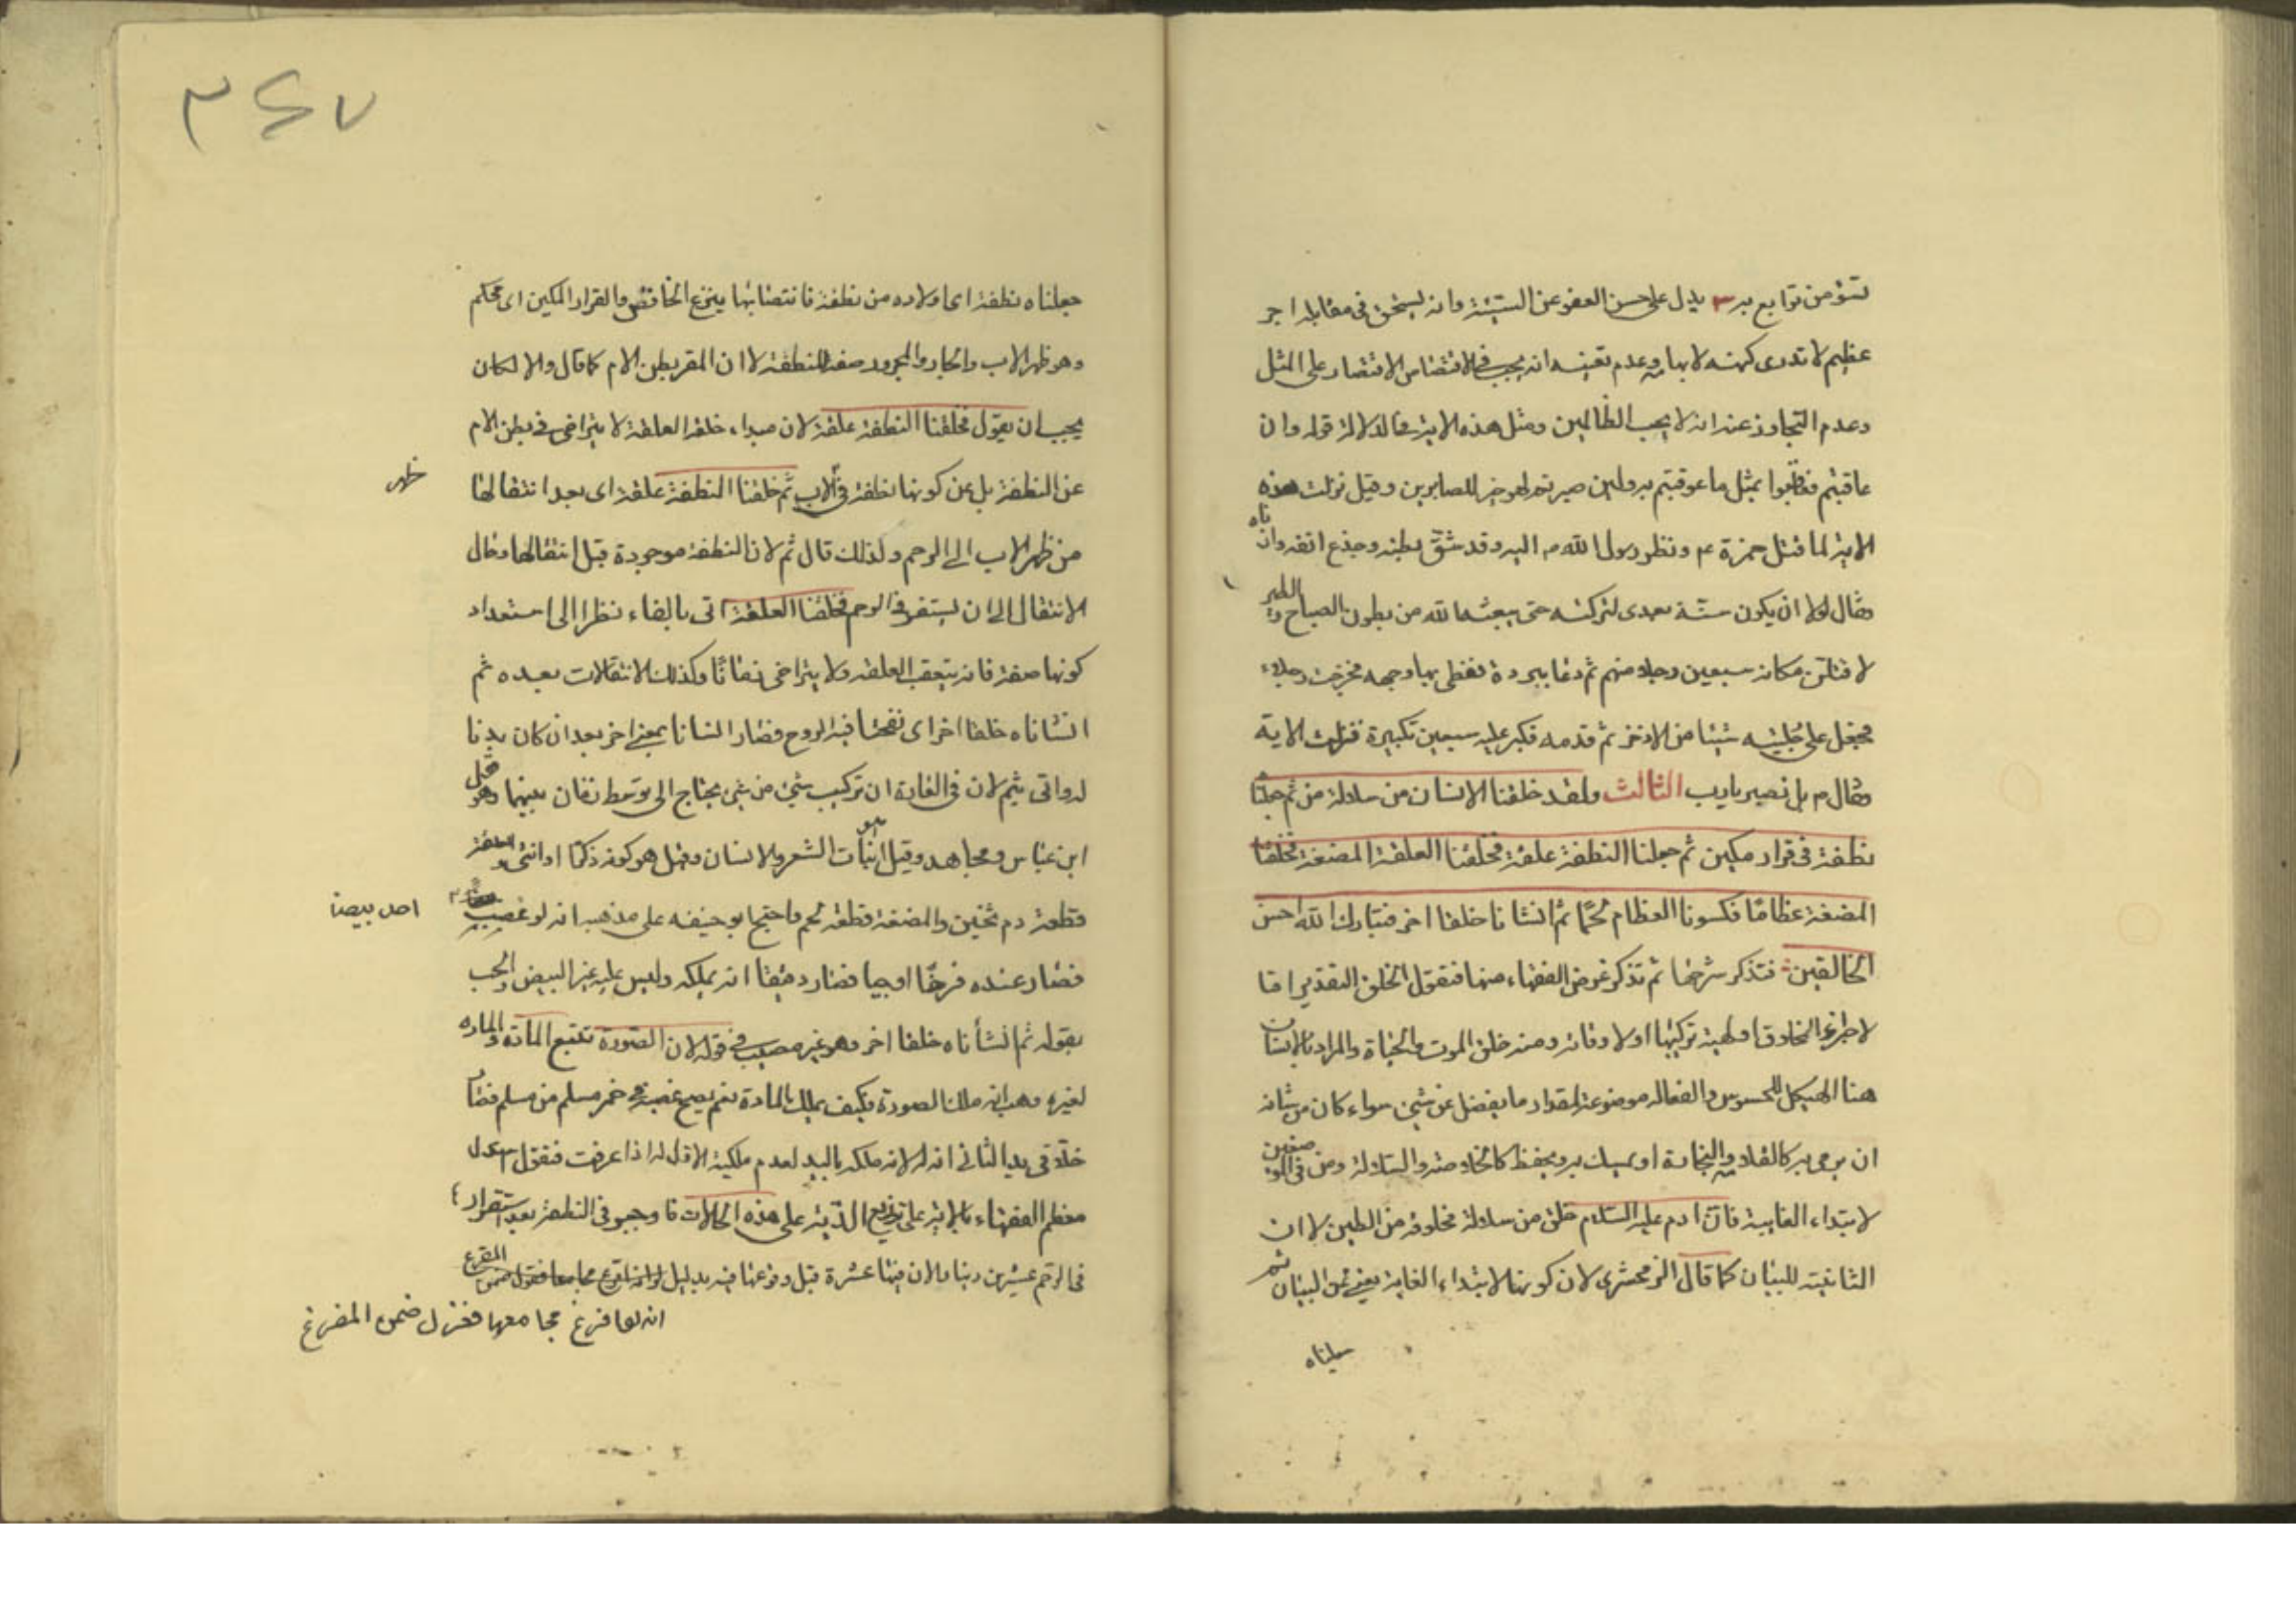 تسؤ من توابع بر ٣ يدل على حسن العفو عن السيئة وانه يستحق فى مقابله اجر
عظيم لا تدرى كهنه لابهامه وعدم تعينه انه يجب فى الاقتصاص الاقتصار على المثل
وعدم التجاوز عنه انه لا يحب الظالمين ومثل هذه الاية فى الدلالة قوله وان
عاقبتم فعاقبوا بمثل ما عوقبتم به ولئن صبرتم لهو خير للصابرين وقيل نزلت هذه
الاية لما قتل حمزة ع ونظر رسول الله ص اليه وقد شق بطنه وجذع انفه واذناه
وقال لولا ان يكون سنة بعدى لتركته حتى يبعثه الله من بطون السباع والطير
لاقتلن مكانه سبعين رجلا منهم ثم دعا ببردة فغطى بها وجهه فخرجت رجلاه
فجعل على رجليه شيئا من الاذخر ثم قدمه فكبر عليه سبعين تكبيرة فنزلت الاية
وقال ص بل نصبر يا رب الثالث ولقد خلقنا الانسان من سلالة من ثم جعلنا
نطفة فى قرار مكين ثم جعلنا النطفة علقة فخلقنا العلقة المضغة فخلقنا
المضغة عظاما فكسونا العظام لحما ثم انشاناه خلقا اخر فتبارك الله احسن
الخالقين فتذكر شرحها ثم تذكر غرض الفقهاء منها فنقول الخلق التقدير اما
لاختراع المخلوق او لهيئة تركيبها اولا وقاته ومنه خلق الموت والحياة والمراد بالانسان
هنا الهيكل المحسوس والفعالة موضوعة لمقدار ما يفضل عن شئ سواء كان من شانه
ان يرمى به كالقلامة والنجارة او يمسك به ويحفظ كالخلاصة والسلالة ومن فى الموضعين
لابتداء الغاية فان ادم عليه السلام خلق من سلالة مخلوقة من الطين لا ان
الثانية للبيان كما قال الزمحشرى لان كونها لابتداء الغاية يعنى عن البيان ثم
جعلناه
٣٤٧
جعلناه نطفة اى اولاده من نطفة فانتصابها بنزع الخافض والقرار المكين اى محكم
وهو ظهر الاب والجار والمجرور صفة للنطفة لا ان المقر بطن الام كما قال والا لكان
يجب ان يقول فخلقنا النطفة علقة لان مبداء خلقة العلقة لا يتراخى فى بطن الام
عن النطفة بل عن كونها نطفة فى الاب ثم خلقنا النطفة علقة اى بعد انتقالها
ظهر
من ظهر الاب الى الرحم ولذلك قال ثم لان النطفة موجودة قبل انتقالها وقال
الانتقال الى ان يستقر فى الرحم فخلقنا العلقة اتى بالفاء نظرا الى استعداد
كونها مضغة فانه يتعقب العلقة ولا يتراخى زمانا وكذلك الانتقلات بعده ثم
انشاناه خلقا اخر اى نفخنا فيه الروح فصار انسانا بمعنى اخر بعد ان كان بدنا
له واتى بثم لان فى العادة ان تركيب شئ من شئ يحتاج الى توسط زمان بينهما وهو قول
ابن عباس ومجاهد وقيل هو انبات الشعر والانسان وقيل هو كونه ذكرا او انثى والعلقة
قطعة دم ثخين والمضغة قطعة لحم واحتج ابو حنيفه على مذهبه انه لو غصب
احد بيضا
فصار عنده فرخا او حبا فصار دقيقا انه يملكه وليس عليه غير البيض والحب
بقوله ثم انشأناه خلقا اخر وهو غير مصيب فى قوله لان الصورة تتبع المادة والمادة
لغيره وهب انه ملك الصورة فكيف يملك المادة نعم يصح غصبه خمر مسلم من مسلم فصار
خلا فى يد الثانى انه له لانه ملكه باليد لعدم ملكية الاول له اذا عرفت فنقول استدل
معظم الفقهاء بالاية على توزيع الدية على هذه الحالات فاوجبو فى النطفة بعد استقرار
فى الرحم عشرين دينارا لان فيها عشرة قبل وقوعها فيه بدليل
انه لو افزع مجامعها فعزل ضمن المفزع